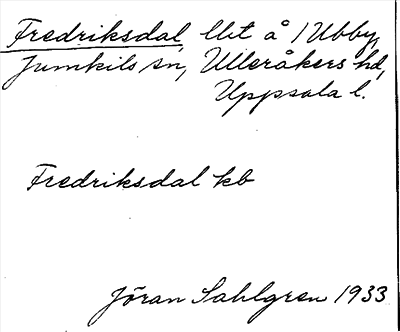 Fredriksdal, lht å 1 Ubby,
Jumkils sn, Ulleråkers hd,
Uppsala l.
Fredriksdal kb
Jöran Sahlgren 1933